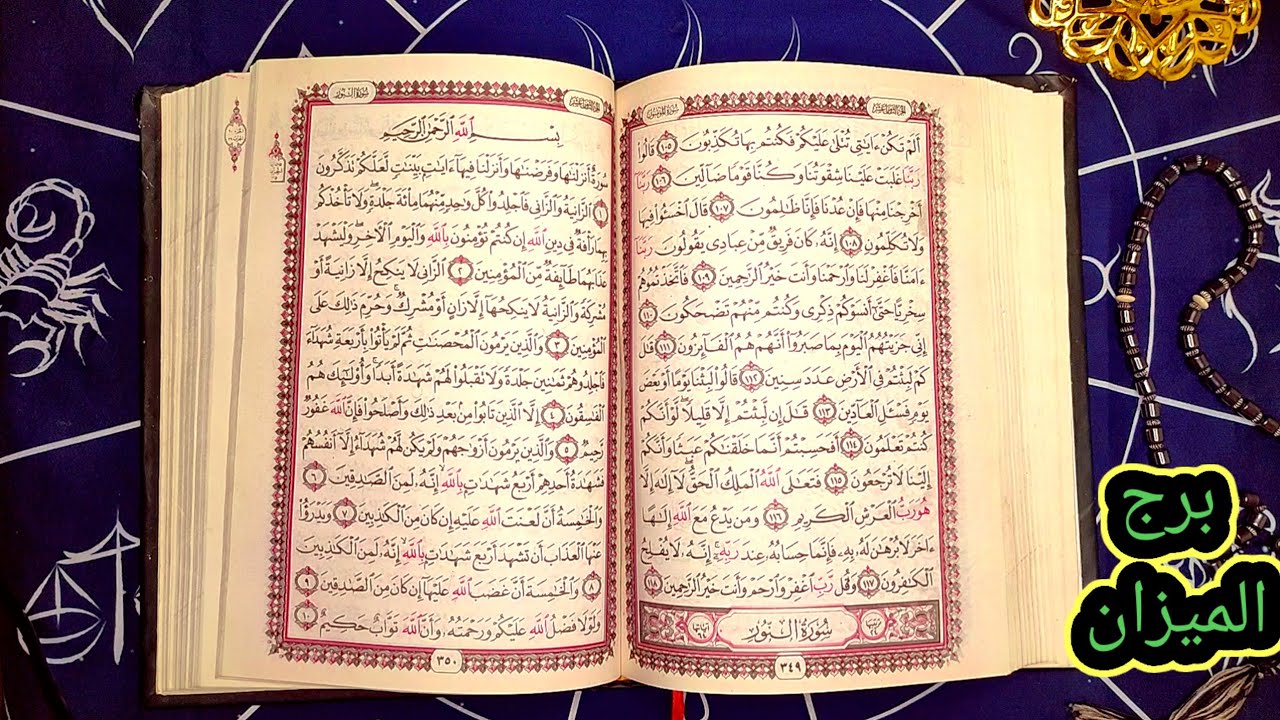 سورة المؤمنون
الجزء الثامن عشر
أَلَمْ تَكُنْ ءَايَٰتِى تُتْلَىٰ عَلَيْكُمْ فَكُنتُم بِهَا تُكَذِّبُونَ ١٠٥ قَالُوا۟
رَبَّنَا غَلَبَتْ عَلَيْنَا شِقْوَتُنَا وَكُنَّا قَوْمًا ضَآلِّينَ ١٠٦ رَبَّنَآ
أَخْرِجْنَا مِنْهَا فَإِنْ عُدْنَا فَإِنَّا ظَٰلِمُونَ ١٠٧ قَالَ ٱخْسَـُٔوا۟ فِيهَا
وَلَا تُكَلِّمُونِ ١٠٨ إِنَّهُۥ كَانَ فَرِيقٌ مِّنْ عِبَادِى يَقُولُونَ رَبَّنَآ
ءَامَنَّا فَٱغْفِرْ لَنَا وَٱرْحَمْنَا وَأَنتَ خَيْرُ ٱلرَّٰحِمِينَ ١٠٩ فَٱتَّخَذْتُمُوهُمْ
سِخْرِيًّا حَتَّىٰٓ أَنسَوْكُمْ ذِكْرِى وَكُنتُم مِّنْهُمْ تَضْحَكُونَ ١١٠
إِنِّى جَزَيْتُهُمُ ٱلْيَوْمَ بِمَا صَبَرُوٓا۟ أَنَّهُمْ هُمُ ٱلْفَآئِزُونَ ١١١ قَٰلَ
كَمْ لَبِثْتُمْ فِى ٱلْأَرْضِ عَدَدَ سِنِينَ ١١٢ قَالُوا۟ لَبِثْنَا يَوْمًا أَوْ بَعْضَ
يَوْمٍ فَسْـَٔلِ ٱلْعَآدِّينَ ١١٣ قَٰلَ إِن لَّبِثْتُمْ إِلَّا قَلِيلًا لَّوْ أَنَّكُمْ
كُنتُمْ تَعْلَمُونَ ١١٤ أَفَحَسِبْتُمْ أَنَّمَا خَلَقْنَٰكُمْ عَبَثًا وَأَنَّكُمْ
إِلَيْنَا لَا تُرْجَعُونَ ١١٥ فَتَعَٰلَى ٱللَّهُ ٱلْمَلِكُ ٱلْحَقُّ لَآ إِلَٰهَ إِلَّا
هُوَ رَبُّ ٱلْعَرْشِ ٱلْكَرِيمِ ١١٦ وَمَن يَدْعُ مَعَ ٱللَّهِ إِلَٰهًا
ءَاخَرَ لَا بُرْهَٰنَ لَهُۥ بِهِۦ فَإِنَّمَا حِسَابُهُۥ عِندَ رَبِّهِۦٓ إِنَّهُۥ لَا يُفْلِحُ
ٱلْكَٰفِرُونَ ١١٧ وَقُل رَّبِّ ٱغْفِرْ وَٱرْحَمْ وَأَنتَ خَيْرُ ٱلرَّٰحِمِينَ ١١٨
سُورَةُ النُّورِ
٣٤٩
الجزء الثامن عشر
سورة النور
بِسْمِ ٱللَّهِ ٱلرَّحْمَٰنِ ٱلرَّحِيمِ
سُورَةٌ أَنزَلْنَٰهَا وَفَرَضْنَٰهَا وَأَنزَلْنَا فِيهَآ ءَايَٰتٍۭ بَيِّنَٰتٍ لَّعَلَّكُمْ تَذَكَّرُونَ
١ ٱلزَّانِيَةُ وَٱلزَّانِى فَٱجْلِدُوا۟ كُلَّ وَٰحِدٍ مِّنْهُمَا مِا۟ئَةَ جَلْدَةٍ وَلَا تَأْخُذْكُم
بِهِمَا رَأْفَةٌ فِى دِينِ ٱللَّهِ إِن كُنتُمْ تُؤْمِنُونَ بِٱللَّهِ وَٱلْيَوْمِ ٱلْءَاخِرِ وَلْيَشْهَدْ
عَذَابَهُمَا طَآئِفَةٌ مِّنَ ٱلْمُؤْمِنِينَ ٢ ٱلزَّانِى لَا يَنكِحُ إِلَّا زَانِيَةً أَوْ
مُشْرِكَةً وَٱلزَّانِيَةُ لَا يَنكِحُهَآ إِلَّا زَانٍ أَوْ مُشْرِكٌ وَحُرِّمَ ذَٰلِكَ عَلَى
ٱلْمُؤْمِنِينَ ٣ وَٱلَّذِينَ يَرْمُونَ ٱلْمُحْصَنَٰتِ ثُمَّ لَمْ يَأْتُوا۟ بِأَرْبَعَةِ شُهَدَآءَ
فَٱجْلِدُوهُمْ ثَمَٰنِينَ جَلْدَةً وَلَا تَقْبَلُوا۟ لَهُمْ شَهَٰدَةً أَبَدًا وَأُو۟لَٰٓئِكَ هُمُ
ٱلْفَٰسِقُونَ ٤ إِلَّا ٱلَّذِينَ تَابُوا۟ مِنۢ بَعْدِ ذَٰلِكَ وَأَصْلَحُوا۟ فَإِنَّ ٱللَّهَ غَفُورٌ
رَّحِيمٌ ٥ وَٱلَّذِينَ يَرْمُونَ أَزْوَٰجَهُمْ وَلَمْ يَكُن لَّهُمْ شُهَدَآءُ إِلَّآ أَنفُسُهُمْ
فَشَهَٰدَةُ أَحَدِهِمْ أَرْبَعُ شَهَٰدَٰتٍۭ بِٱللَّهِ إِنَّهُۥ لَمِنَ ٱلصَّٰدِقِينَ ٦
وَٱلْخَٰمِسَةُ أَنَّ لَعْنَتَ ٱللَّهِ عَلَيْهِ إِن كَانَ مِنَ ٱلْكَٰذِبِينَ ٧ وَيَدْرَؤُا۟
عَنْهَا ٱلْعَذَابَ أَن تَشْهَدَ أَرْبَعَ شَهَٰدَٰتٍۭ بِٱللَّهِ إِنَّهُۥ لَمِنَ ٱلْكَٰذِبِينَ
٨ وَٱلْخَٰمِسَةَ أَنَّ غَضَبَ ٱللَّهِ عَلَيْهَآ إِن كَانَ مِنَ ٱلصَّٰدِقِينَ ٩
وَلَوْلَا فَضْلُ ٱللَّهِ عَلَيْكُمْ وَرَحْمَتُهُۥ وَأَنَّ ٱللَّهَ تَوَّابٌ حَكِيمٌ ١٠
٣٥٠
برج
الميزان